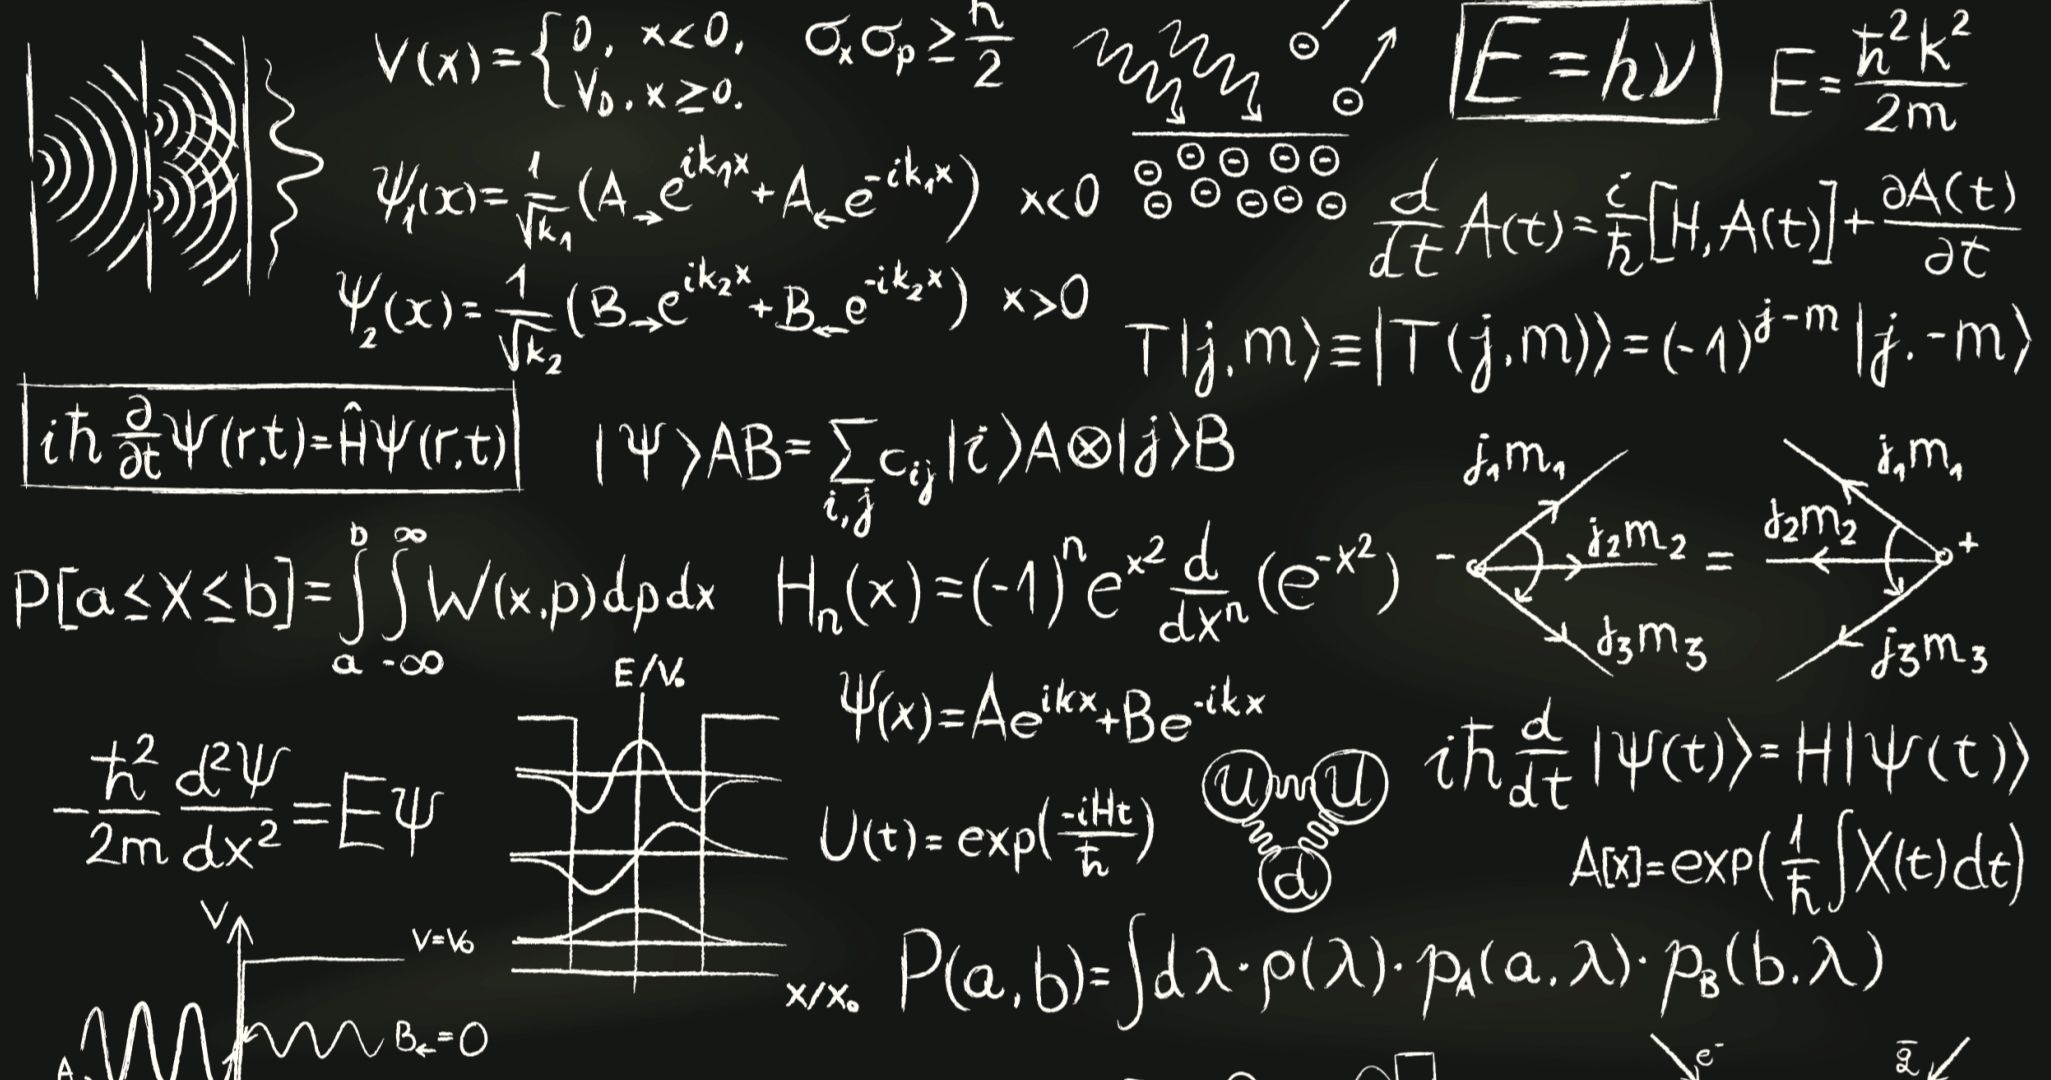 V(x)={0, x<0, V₀, x≥0.
σₓσₚ≥ħ/2
E=hν
E=ħ²k²/2m
ψ₁(x)=1/√k₁(A→e^{ik₁x}+A←e^{-ik₁x}) x<0
d/dt A(t)=i/ħ[H,A(t)]+∂A(t)/∂t
ψ₂(x)=1/√k₂(B→e^{ik₂x}+B←e^{-ik₂x}) x>0
T|j,m⟩≡|T(j,m)⟩=(-1)^{j-m}|j,-m⟩
iħ ∂/∂t Ψ(r,t)=ĤΨ(r,t)
|Ψ⟩AB=∑_{i,j} c_{ij}|i⟩A⊗|j⟩B
j₁m₁
j₂m₂
j₃m₃
- = +
j₁m₁
j₂m₂
j₃m₃
P[a≤X≤b]=∫_a^b∫_{-∞}^{∞}W(x,p)dpdx
Hₙ(x)=(-1)ⁿe^{x²} d/dxⁿ(e^{-x²})
E/V₀
Ψ(x)=Ae^{ikx}+Be^{-ikx}
iħ d/dt|Ψ(t)⟩=H|Ψ(t)⟩
-ħ²/2m d²Ψ/dx²=Eψ
U(t)=exp(-iHt/ħ)
U U
d
A[x]=exp(1/ħ∫X(t)dt)
V
V=V₀
x/x₀
P(a,b)=∫dλ·ρ(λ)·p_A(a,λ)·p_B(b,λ)
B←=0
A
e⁻